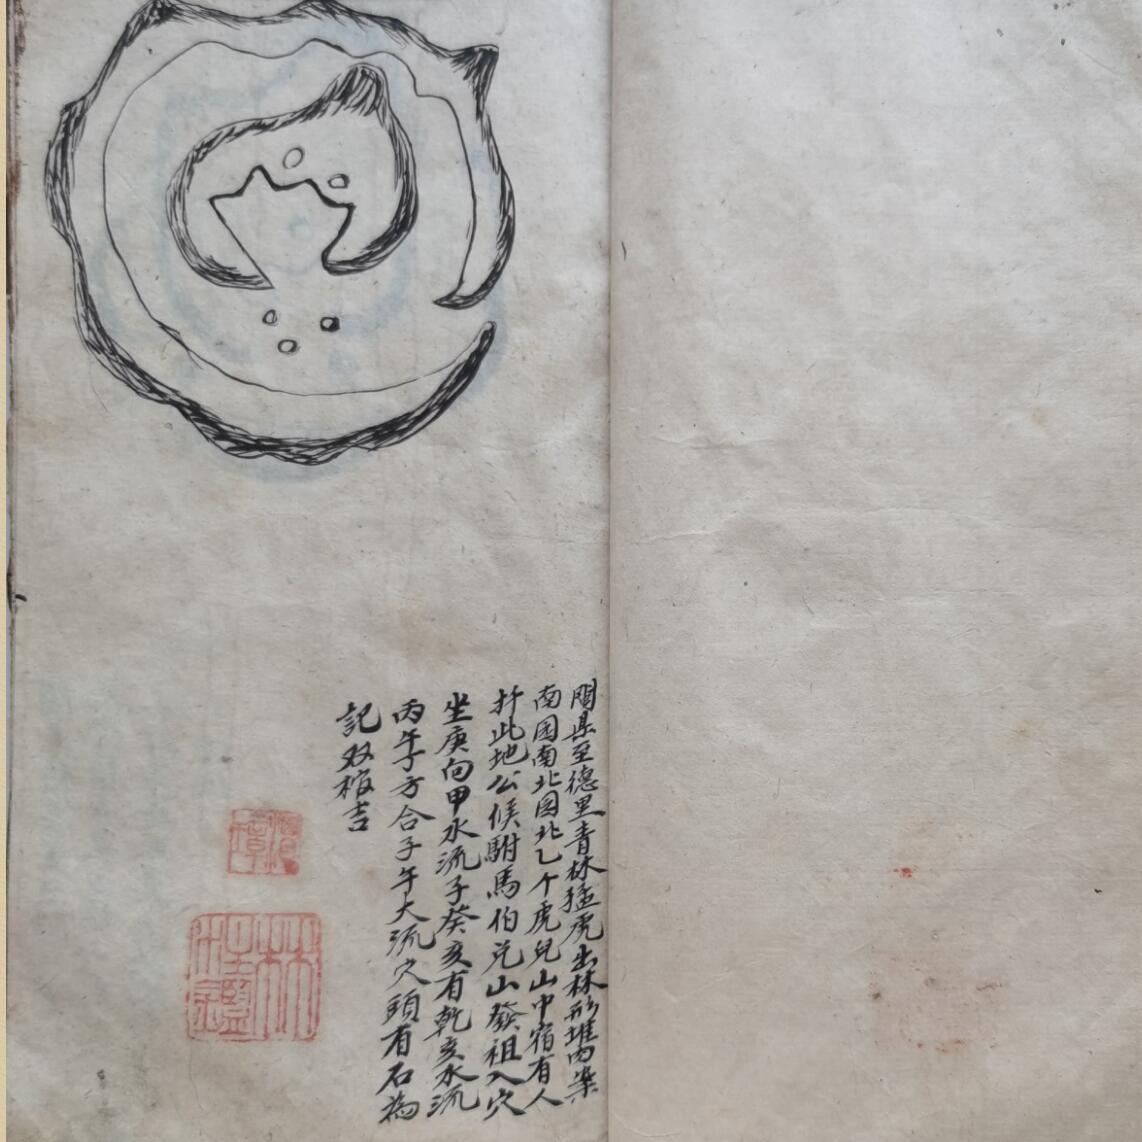 閩县至德里青林猛虎出林形堆内案
南园南北园北乙个虎兒山中宿有人
扦此地公候駙馬伯兑山發祖入穴
坐庚向甲水流子癸亥有乾亥水流
丙午丁方合子午大流穴頭有石為
記双棺吉